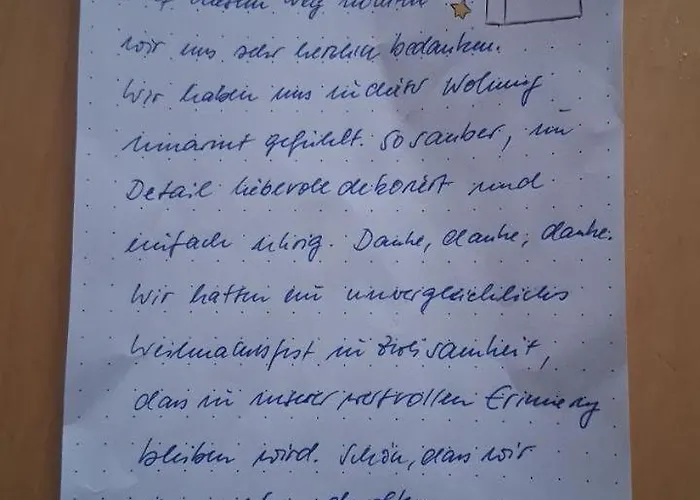 diesem Weg möchten
wir uns sehr herzlich bedanken.
Wir haben uns in dieser Wohnung
umarmt gefühlt. So sauber, im
Detail liebevoll dekoriert und
einfach uhrig. Danke, danke, danke.
Wir hatten ein unvergleichliches
Weihnachtsfest in Zweisamkeit,
dass in unserer wertvollen Erinnerung
bleiben wird. Schön, dass wir